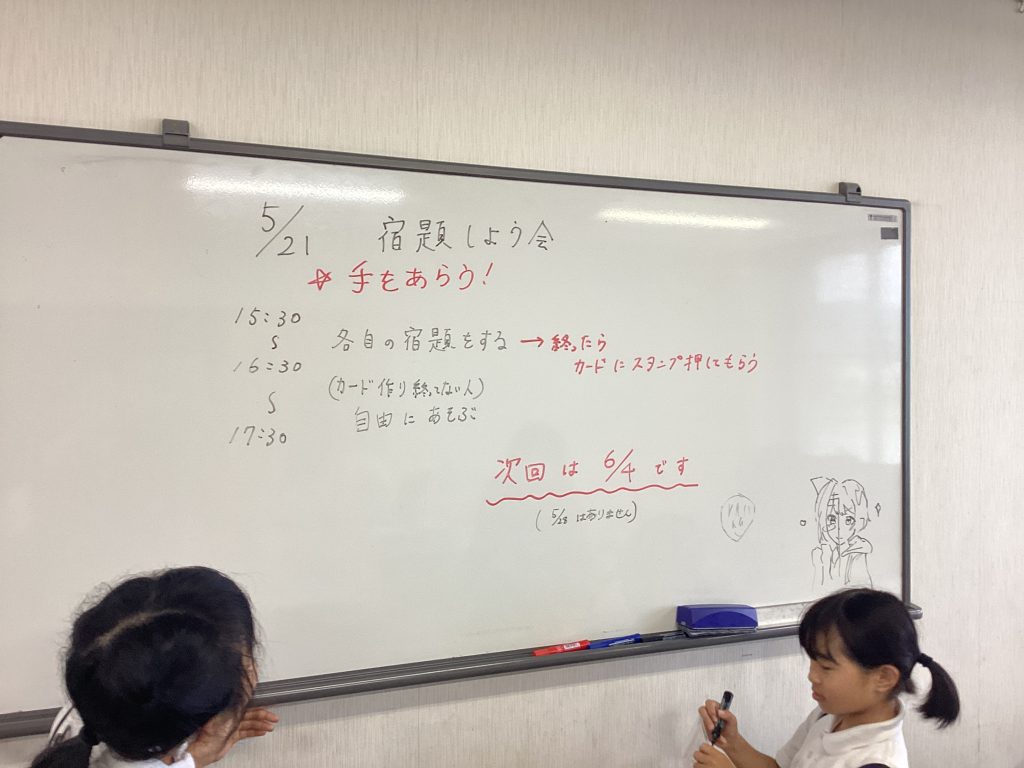 5/21 宿題しよう会
☆ 手をあらう!
15:30
S
16:30
S
17:30
各自の宿題をする → 終ったら
カードにスタンプ押してもらう
(カード作り終ってない人)
自由にあそぶ
次回は 6/4 です
(5/28 はありません)